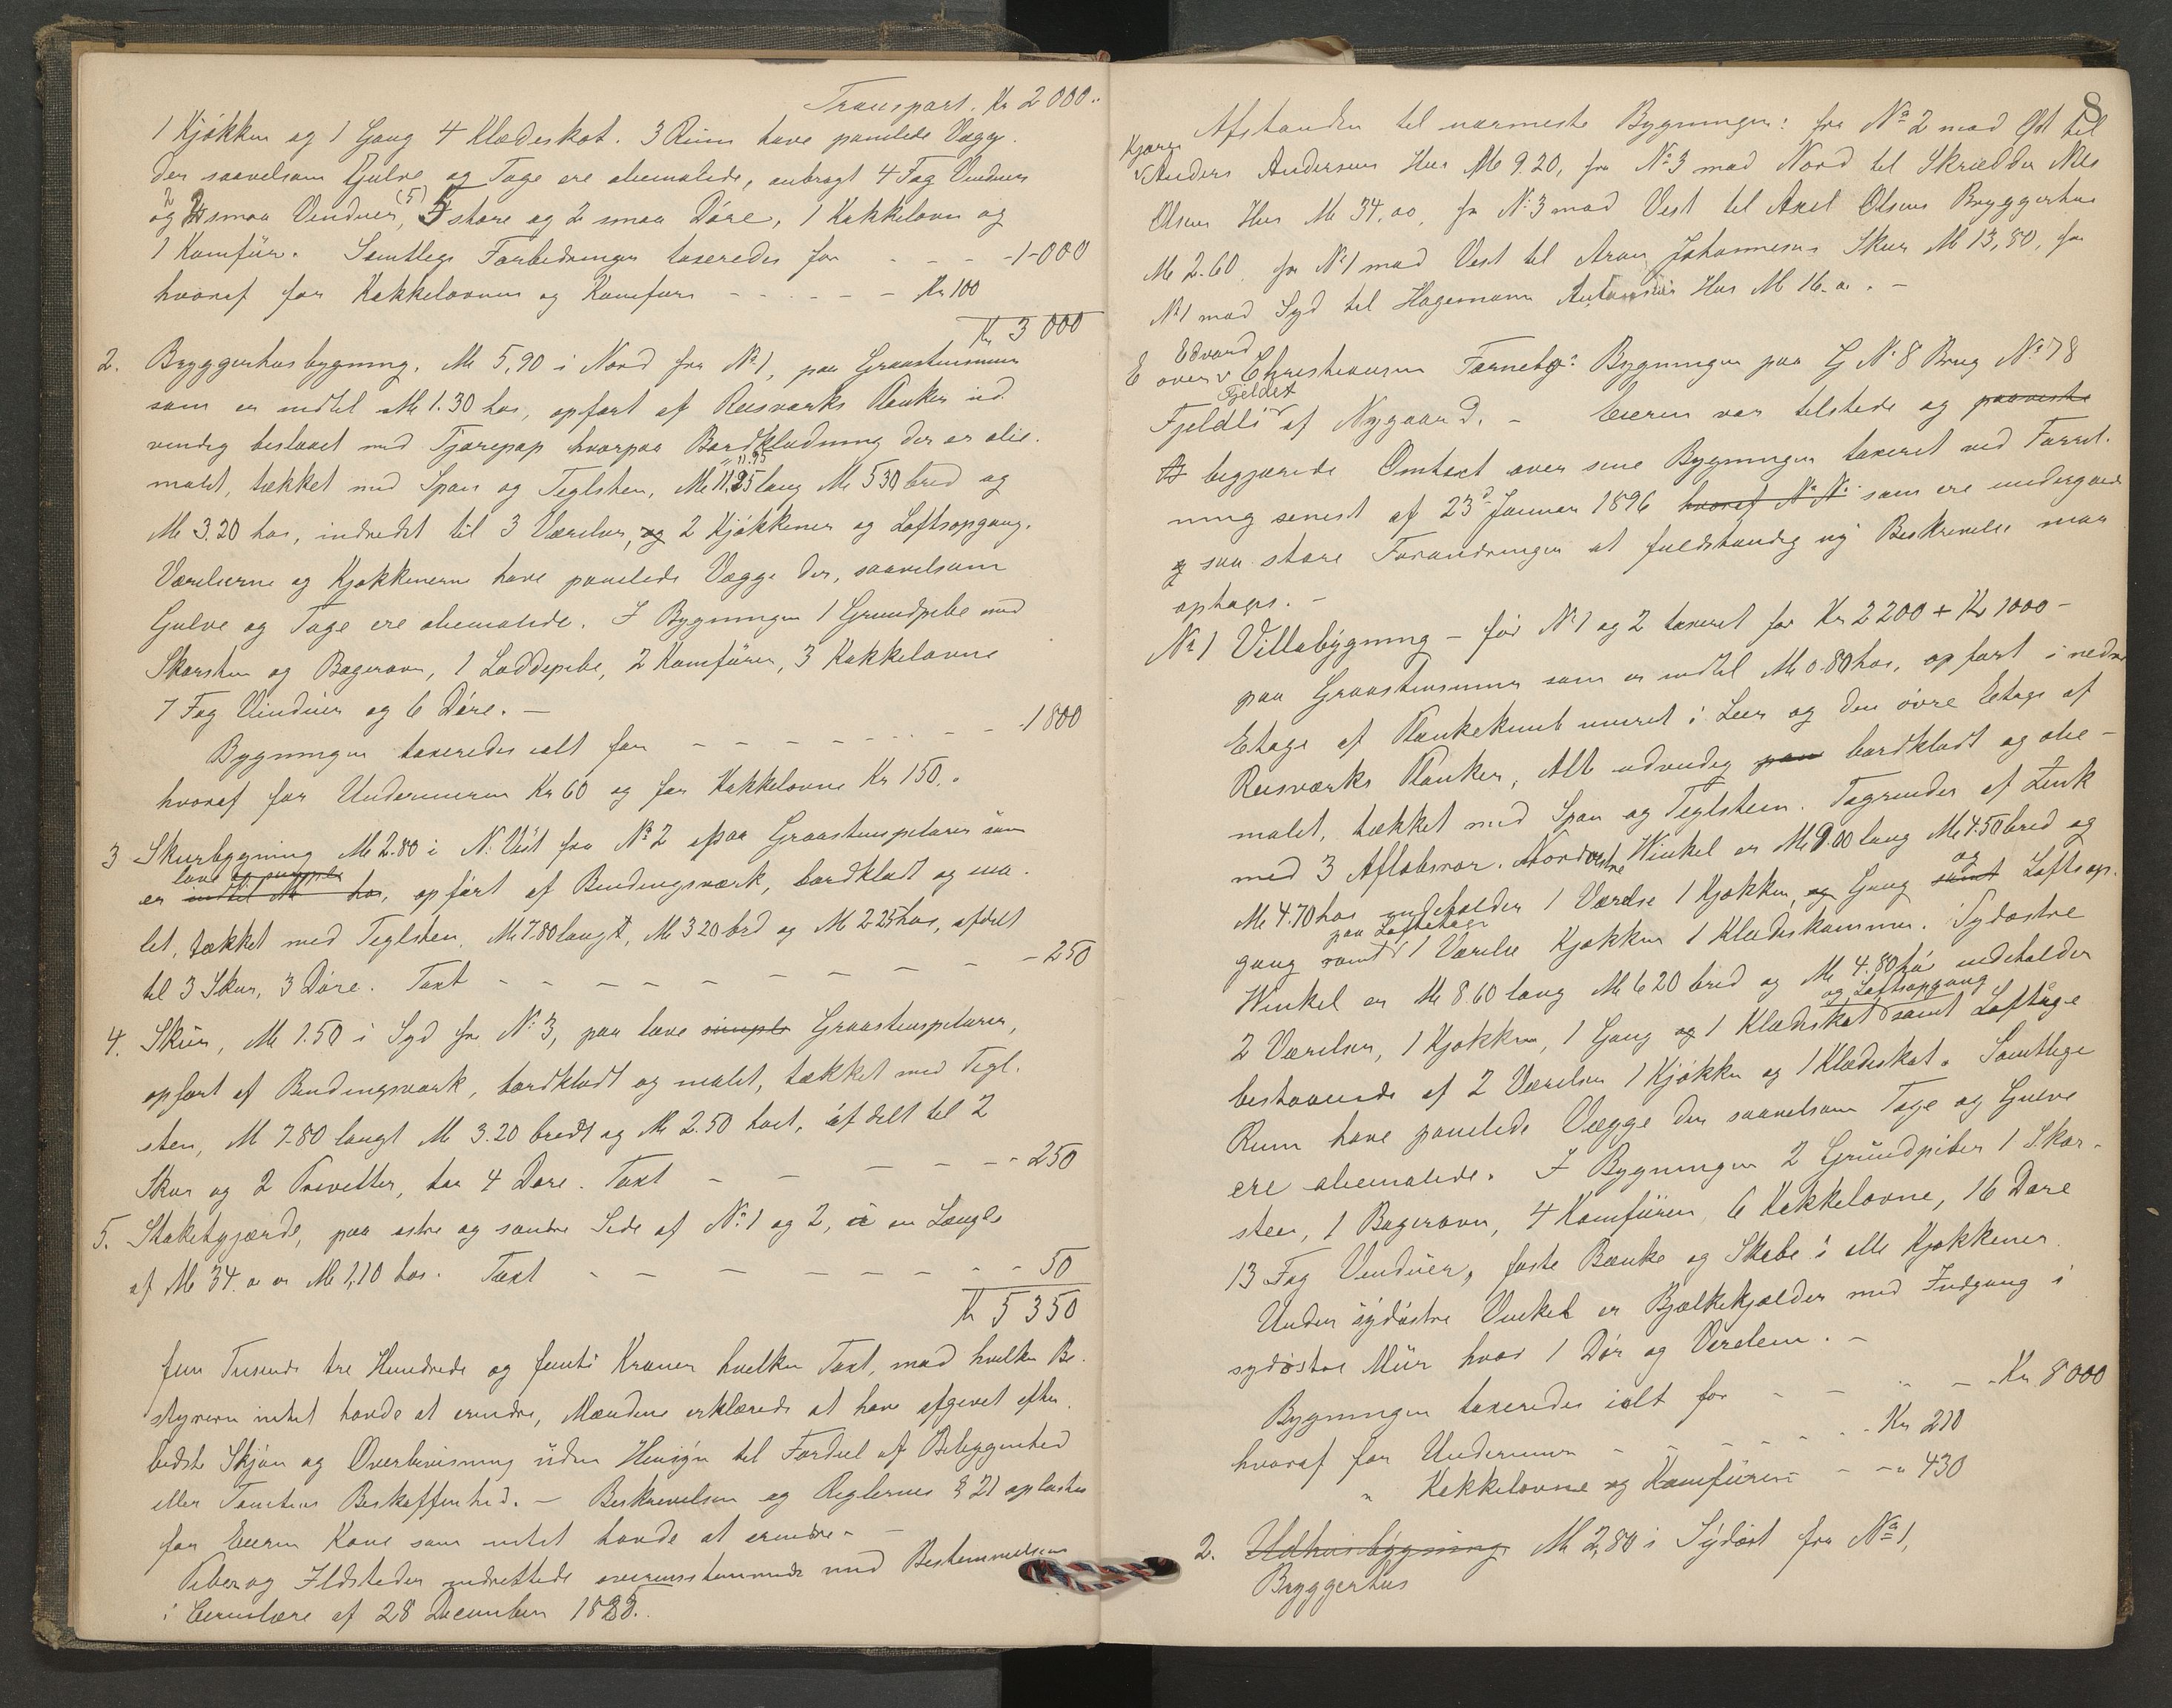 Transport. Kr 2000.
1 Kjøkken og 1 Gang 4 Klædeskot. 3 Rum have panelede Vægge.
der saavelsom Gulve og Tage ere oliemalede, anbragt 4 Fag Vinduer
og 2 smaa Vinduer, (5) 5 store og 2 smaa Døre, 1 Kakkelovn og
1 Komfür. Samtlige Forbedringer taxeredes for - - - - 1-000
hvoraf for Kakkelovnen og Komfuren - - - - - - Kr 100
Kr 3000
2. Bryggerhusbygning, M 5,90 i Nord fra No 1, paa Graastensmuur
som er indtil M 1.30 høi, opført af Reisværks Planker ud
vendig beslaaet med Tjærepap hvorpaa Bordklædning der er olie-
malet, tækket med Spon og Teglsten, M 11,95 lang M 530 bred og
M 3.20 høi, indredet til 3 Værelser, og 2 Kjøkkener og Loftsopgang.
Værelserne og Kjøkkenerne have panelede Vægge der, saavelsom
Gulve og Tage ere oliemalede. I Bygningen 1 Grundpibe med
Skorsten og Bagerovn, 1 Laddepibe, 2 Komfürer, 3 Kakkelovne
7 Fag Vinduer og 6 Døre. -
Bygningen taxeredes ialt for - - - - - - - - - 1800
hvoraf for Undermuren Kr 60 og for Kakkelovne Kr 150.
3 Skurbygning M 2.80 i N. Vest fra No 2 paa Graastenspilarer som
lave og simple
er indtil M høi, opført af Bindingsværk, bordklædt og ma-
let, tækket med Teglsten, M 7.80 langt, M 320 bred og M 225 høi, afdelt
til 3 Skur, 3 Døre. Taxt - - - - - - - - - 250
4. Skur, M 1.50 i Syd fra No 3, paa lave simple Graastenspilarer,
opført af Bindingsværk, bordklædt og malet, tækket med Tegl-
sten, M 7.80 langt M 3.20 bredt og M 2.50 høit, afdelt til 2
Skur og 2 Privetter, har 4 Døre. Taxt - - - - - - 250
5. Staketgjærde, paa østre og søndre Side af No 1 og 2, i en Længde
af M 34. er M 1,10 høi. Taxt - - - - - - - - - 50
Kr 5350
fem Tusinde tre Hundrede og femti Kroner hvilken Taxt, mod hvilken Be-
styreren intet havde at erindre, Mændene erklærede at have afgivet efter
bedste Skjøn og Overbevisning uden Hensyn til Fordeel af Beliggenhed
eller Tomtens Beskaffenhed. - Beskrivelsen og Reglernes § 21 oplæstes
for Eierens Kone som intet havde at erindre. -
Piber og Ildsteder indrettede overensstemmende med Bestemmelserne
i Circulære af 28 December 1888.
8
Afstanden til nærmeste Bygninger: fra No 2 mod Øst til
Anders Andersens Hus M 9.20, fra No 3 mod Nord til Skrædder Nils
Olsens Hus M 34,00, fra No 3 mod Vest til Axel Olsens Bryggerhus
M 2.60 fra No 1 mod Vest til Aron Johannesens Skur M 13,80, fra
No 1 mod Syd til Hagemann Hus M 16. -
Edvard
E over Christiansen Fornebo: Bygninger paa G No 8 Brug No 78
Fjeldet
Fjeldli af Nygaard. - Eieren var tilstede og paaviste
begjærede Omtaxt over sine Bygninger taxeret ved Forret-
ning senest af 23de Januar 1896 hvoraf No som ere undergaaet
og saa store Forandringer at fuldstændig ny Beskrivelse maa
optages. -
No 1 Villabygning - før No 1 og 2 taxeret for Kr 2200 + Kr 1000 -
paa Graastensmur som er indtil M 0.80 høi, opført i nedre
Etage af Plankekubb muret i Leer og den øvre Etage af
Reisværks Planker, Alt udvendig paa bordklædt og olie-
malet, tækket med Spon og Teglsteen. Tagrender af Zink
med 3 Afløbsrør. Nordvestre Winkel er M 9.00 lang M 4.50 bred og
M 4.70 høi indeholder 1 Værelse 1 Kjøkken, og Gang samt og Loftsop-
paa Loftetage
gang samt 1 Værelse Kjøkken 1 Klædeskammer. Sydøstre
Winkel er M 8.60 lang M 6 20 bred og M 4.80 høi indeholder
og Loftsopgang
2 Værelser, 1 Kjøkken, 1 Gang og 1 Klædeskot samt Loftage
bestaaende af 2 Værelser 1 Kjøkken og 1 Klædeskot. Samtlige
Rum have panelede Vægge der saavelsom Tage og Gulve
ere oliemalede. I Bygningen 2 Grundpiber 1 Skor-
steen, 1 Bagerovn, 4 Komfürer 6 Kakkelovne, 16 Døre
13 Fag Vinduer, faste Bænke og Skabe i alle Kjøkkener.
Under sydøstre Vinkel er Bjælkekjælder med Indgang i
sydøstre Mür hvor 1 Dør og
Bygningen taxeredes ialt for - - - - Kr 8000
hvoraf for Undermuren - - - - - - Kr 210
" Kakkelovne og Komfürer - - - " 430
2. Udhusbygning M 2,80 i Sydøst fra No 1,
Bryggerhus